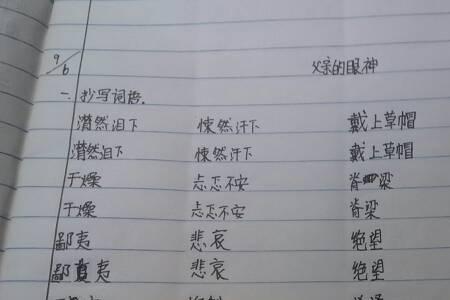 9/6
父亲的眼神
一、抄写词语.
潸然泪下 悚然汗下 戴上草帽
潸然泪下 悚然汗下 戴上草帽
干燥 忐忑不安 脊梁
干燥 忐忑不安 脊梁
鄙夷 悲哀 绝望
鄙夷 悲哀 绝望